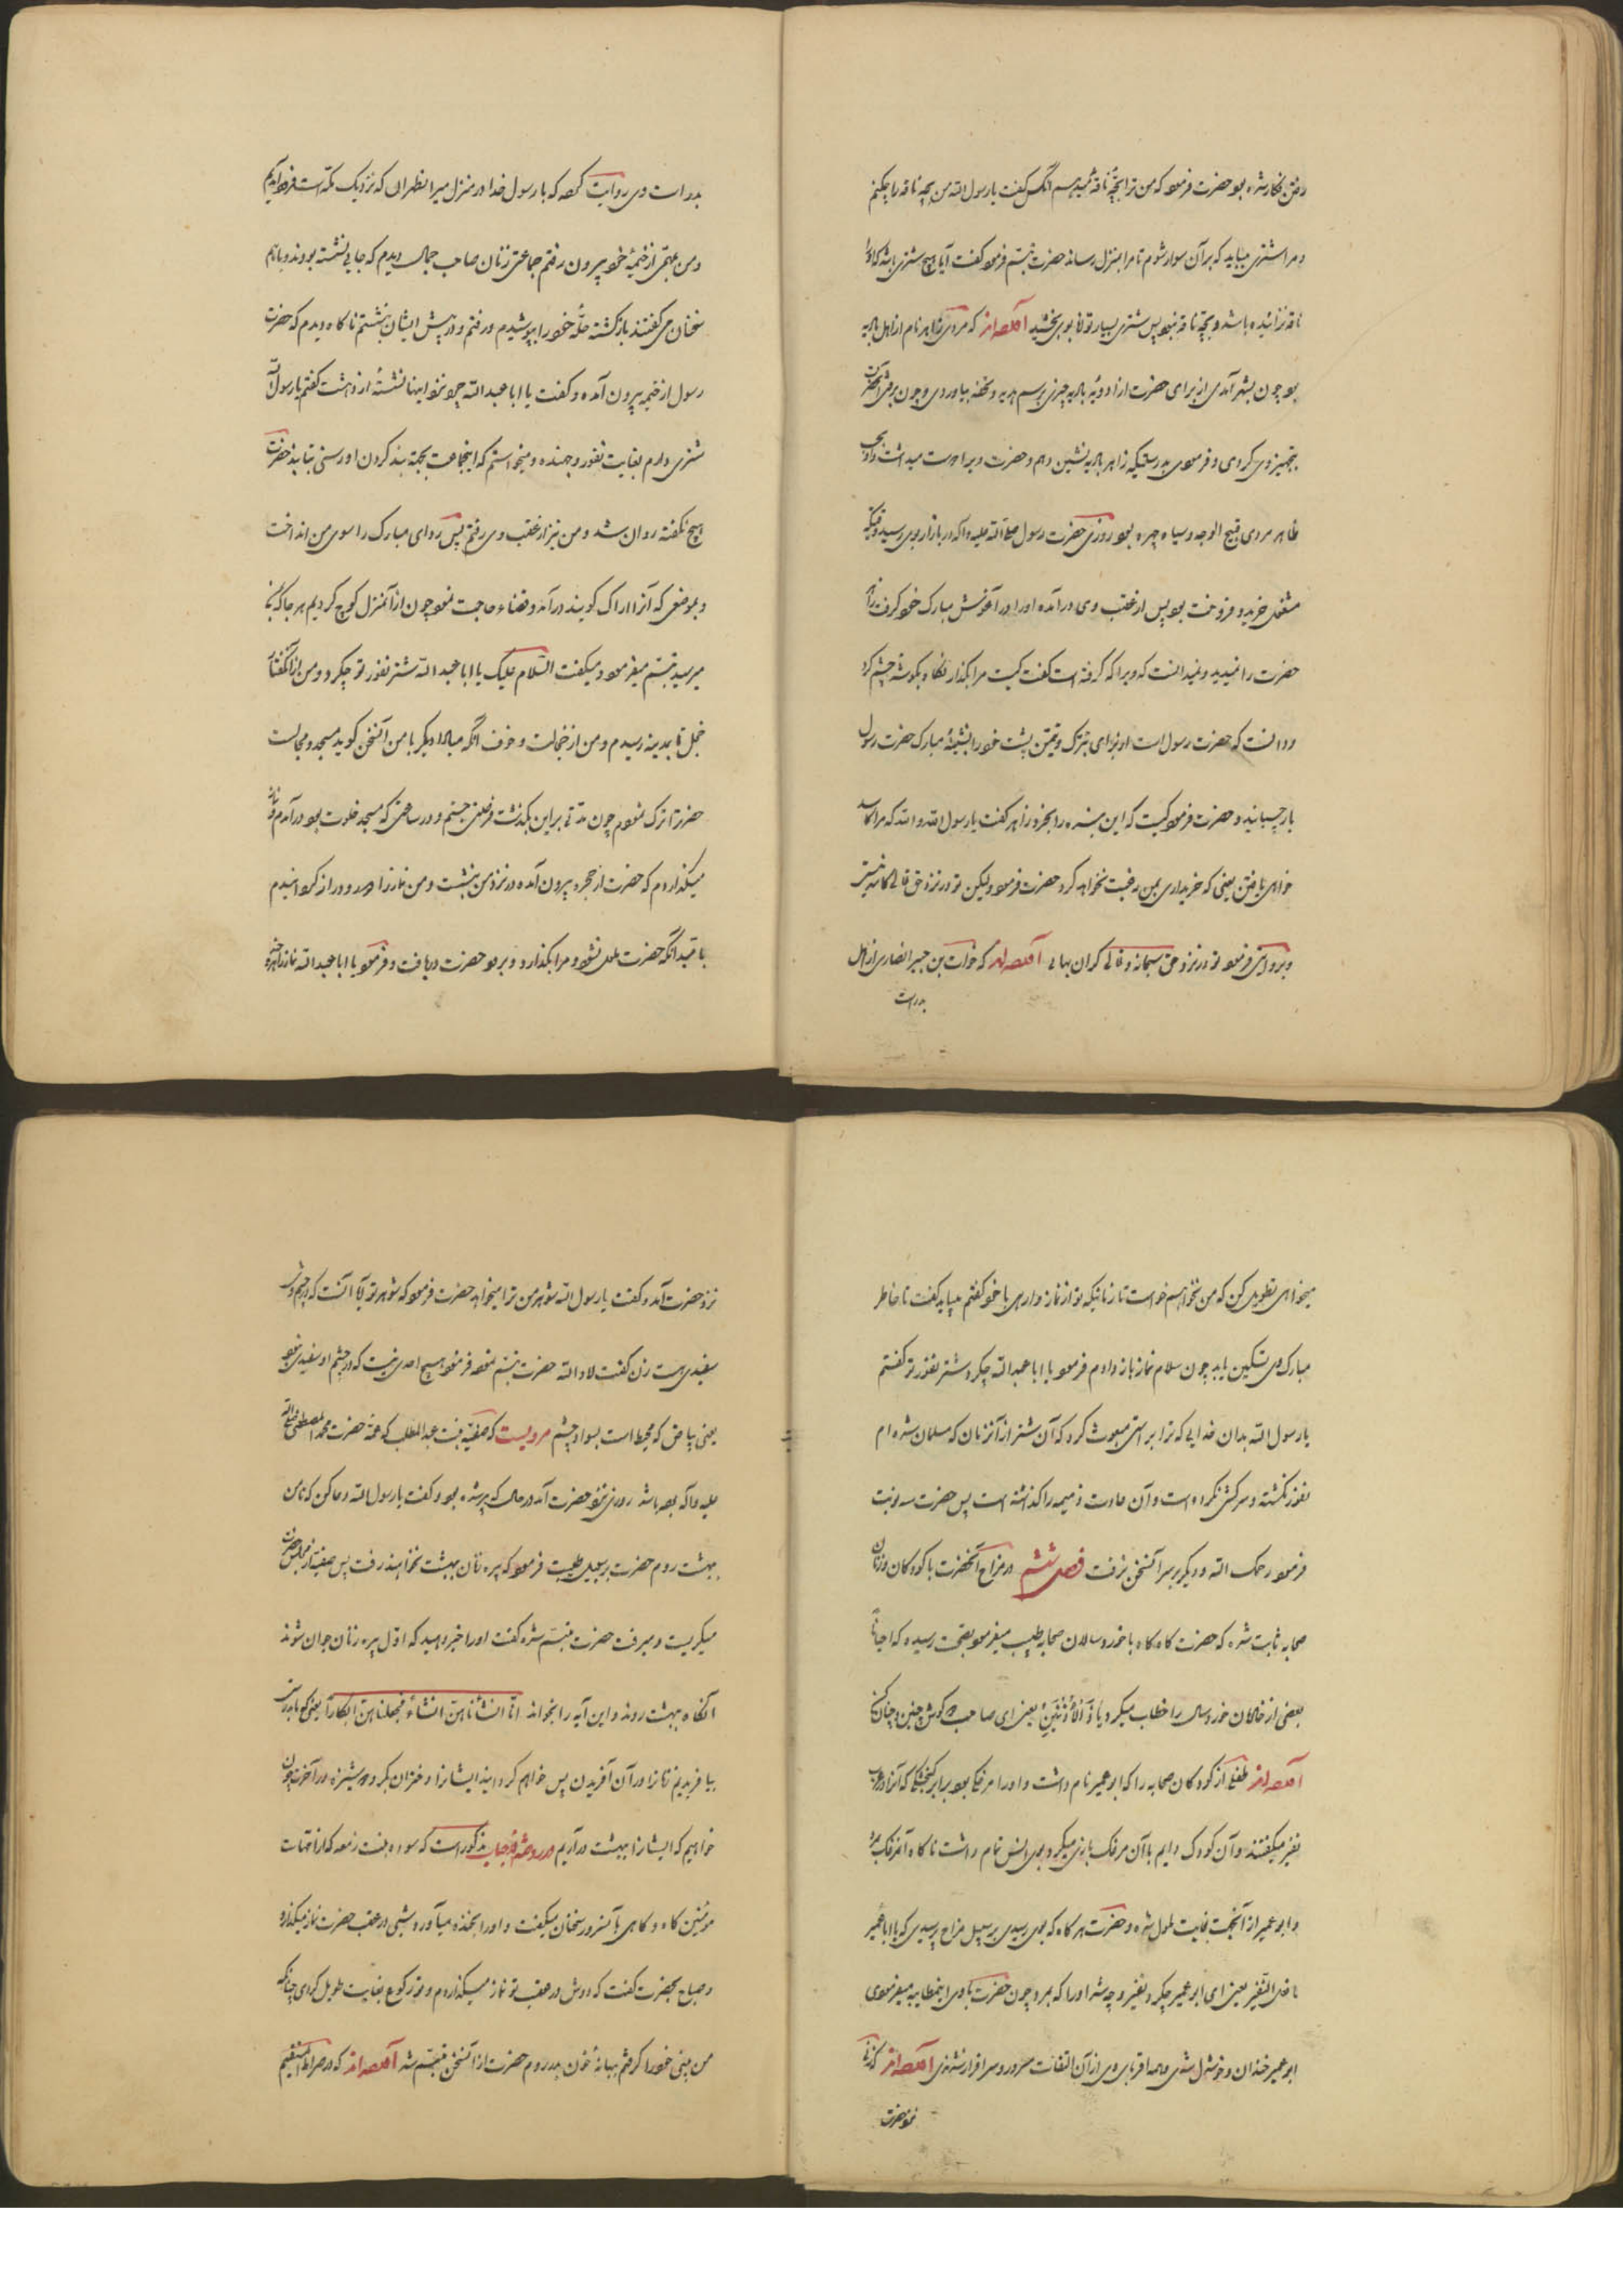 رفتن نگار شده بود حضرت فرمود که من ترا بچهٔ ناقهٔ میدهم آنکس گفت یا رسول الله من بچه ناقه را چکنم
و مرا شتری میباید که بر آن سوار شوم تا مرا بمنزل رساند حضرت تبسّم فرمود گفت آیا هیچ شتری باشد که او را
ناقه نزائیده باشد و بچهٔ ناقه نبود پس شتری بسیار توانا بوی بخشید آلقصه از که مردی زاهر نام از اهل بادیه
بود چون بشهر آمدی از برای حضرت از ادویهٔ بادیه چیزی برسم هدیه و تحفه بیاوردی و چون برفتی آنحضرت
بتجهیز وی کردی و فرمودی بدرستیکه زاهر بادیه نشین و حضرت ویرا دوست میداشت
ظاهر مردی قبیح الوجه و سیاه چهره بود روزی حضرت رسول صلی الله علیه و آله در بازار بوی رسید وقتیکه
مشغول خرید و فروخت بود پس از عقب وی در آمده او را در آغوش مبارک خود گرفت زاهر
حضرت را نمیدید و نمیدانست که ویرا که گرفته است گفت کیست مرا بگذار نگاه بگوشه چشم کرد
و دانست که حضرت رسول است او برای تبرّک و تیمّن پشت خود را بسینهٔ مبارک حضرت رسول
باز چسبانید و حضرت فرمود کیست که این بنده را بخرد زاهر گفت یا رسول الله والله که مرا کاسد
خواهی یافتن یعنی که خریداری بمن رغبت نخواهد کرد حضرت فرمود ولیکن تو در نزد حق تعالی کاسد نیستی
و بروایتی فرمود تو در نزد حق سبحانه و تعالی گران بهایی آلقصه از که خوات بن جبیر انصاری از اهل
بدر است
بدر است وی روایت کرده که با رسول خدا در منزل مر الظهران که نزدیک مکّه است فرود آمدیم
و من عتمی از خیمهٔ خود بیرون رفتم جماعتی زنان صاحب جمال دیدم که جایی نشسته بودند و باهم
سخنان می گفتند بازگشته حلّه خود را بپوشیدم و رفتم و در پیش ایشان بنشستم ناگاه دیدم که حضرت
رسول از خیمه بیرون آمده و گفت یا ابا عبد الله چونتو اینها نشستهٔ از دهشت گفتم یا رسول الله
شتری دارم بغایت نفور و جهنده و میخواستم که اینجماعت بجهة بند کردن او رسنی بتابند حضرت
هیچ نگفته روان شد و من نیز از عقب وی رفتم پس ردای مبارک را سوی من انداخت
و بموضعی که آنرا اراک گویند در آمد و قضاء حاجت نمود چون از آن منزل کوچ کردیم هر جا که بمن
میرسید تبسّم میفرمود و میگفت السّلام علیک یا ابا عبد الله شتر نفور تو چکرد و من از آن گفتار
خجل تا بمدینه رسیدم و من از خجالت و خوف آنکه مبادا دیگر با من آنسخن گوید مسجد و مجالست
حضرترا ترک نمودم چون مدتی بر این بگذشت فرصتی جستم و در ساعتی که مسجد خلوت بود در آمدم و نماز
میگذاردم که حضرت از حجره بیرون آمده در نزد من بنشست و من نماز را دور و دراز گردانیدم
بامید آنکه حضرت ملول شود و مرا بگذارد و برود حضرت دریافت و فرمود یا ابا عبد الله نماز را هر چه
میخواهی تطویل کن که من نخواهم خواست تا زمانیکه تو از نماز وارهی با خود گفتم میباید گفت تا خاطر
مبارک وی تسکین یابد چون سلام نماز باز دادم فرمود یا ابا عبد الله چکرد شتر نفور تو گفتم
یا رسول الله بدان خدایی که ترا براستی مبعوث کرد که آن شتر از آنزمان که مسلمان شده ام
نفور نگشته و سرکشی نکرده است و آن عادت ذمیمه را گذاشته است پس حضرت سه نوبت
فرمود رحمک الله و دیگر بر سر آنسخن نرفت فصل ششم در مزاح آنحضرت با کودکان و زنان
صحابه ثابت شده که حضرت گاه گاه با خورد سالان صحابه طیبت میفرمود بصحّت رسیده که احیاناً
بعضی از خادمان خورد سال را خطاب میکرد یا ذَالأُذُنَینِ یعنی ای صاحب دو گوش چنین و چنان کن
آلقصه از طفلی از کودکان صحابه را که ابو عمیر نام داشت و او را مرغکی بود برابر گنجشکی که آنرا در عرب
نغیر میگفتند و آن کودک دایم با آن مرغک بازی میکرد و بوی انس تمام داشت ناگاه آنمرغک بمرد
و ابو عمیر از آنجهت بغایت ملول شده و حضرت هر گاه که بوی رسیدی بر سبیل مزاح پرسیدی که یا ابا عمیر
ما فعل النّغیر یعنی ای ابو عمیر چکرد نغیر و چه شد او را که بمرد و چون حضرت با وی اینمطایبه میفرمودی
ابو عمیر خندان و خوشدل شدی و همه اقربای وی از آن التفات مسرور و سر افراز شدندی آلقصه از که زنی
نزد حضرت
نزد حضرت آمد و گفت یا رسول الله شوهر من ترا میخواهد حضرت فرمود که شوهر تو آیا آنست که در چشم وی
سفیدی هست زن گفت لا والله حضرت تبسّم نموده فرمود هیچ احدی نیست که در چشم او سفیدی نبود
یعنی بیاض که محیط است بسواد چشم مرویست که صفیّه بنت عبد المطلب که عمّهٔ حضرت محمد المصطفی صلی الله
علیه و آله بوده باشد روزی نزد حضرت آمد در حالی که پیر شده بود و گفت یا رسول الله دعا کن که تا من
بهشت روم حضرت بر سبیل طیبت فرمود که پیره زنان بهشت نخواهند رفت پس صفیّه از مجلس حضرت
میگریست و میرفت حضرت متبسّم شده گفت او را خبر دهید که اوّل پیره زنان جوان شوند
آنگاه بهشت روند و این آیه را بخواند انّا انشأناهنّ انشاءً فجعلناهنّ ابکاراً یعنی که ما بدرستی
بیافریدیم زنانرا در آن آفریدن پس خواهم گردانید ایشانرا دختران بکر و دوشیزه در آخرت چون
خواهیم که ایشانرا ببهشت در آریم در روضة الاحباب مذکور است که سوده بنت زمعه که از امّهات
مؤمنین گاه و گاهی با آنسرور سخنان میگفت و او را بخنده میآورد و شبی در عقب حضرت نماز میگذارد
و صباح بحضرت گفت که دوش در عقب تو نماز میگذاردم و تو رکوع بغایت طویل کردی چنانکه
من بینی خود را گرفتم بهانهٔ خون بدر روم حضرت از آنسخن متبسّم شد آلقصه از که در صراط المستقیم